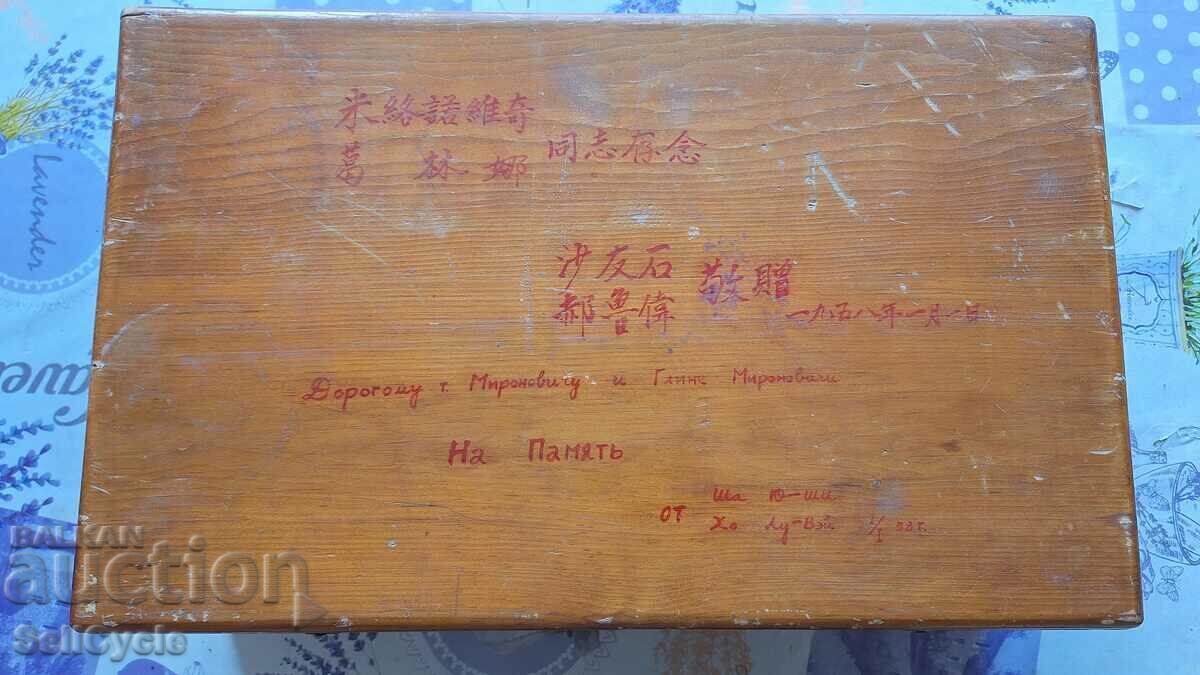 米絡諾維奇
葛林娜 同志存念
沙友石
郝魯偉 敬贈
一九五八年一月一日
Дорогому т. Мироновичу и Глине Миронович
На Память
от Ша Ю-ши
Хо Лу-Вэй 1/I 58г.
Lavender
BALKAN
auction
SellCycle